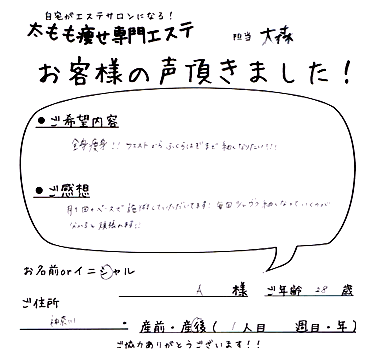 自宅がエステサロンになる！
太もも痩せ専門エステ 担当 大森
お客様の声頂きました！
●ご希望内容
全身痩身!! ウエストからふくらはぎまで細くなりたい!!!
●ご感想
月1回のペースで施術していただいてます!
お名前orイニシャル
A 様 ご年齢 28 歳
ご住所
神奈川 ・ 産前・産後（ 1 人目 週目・年）
ご協力ありがとうございます！！